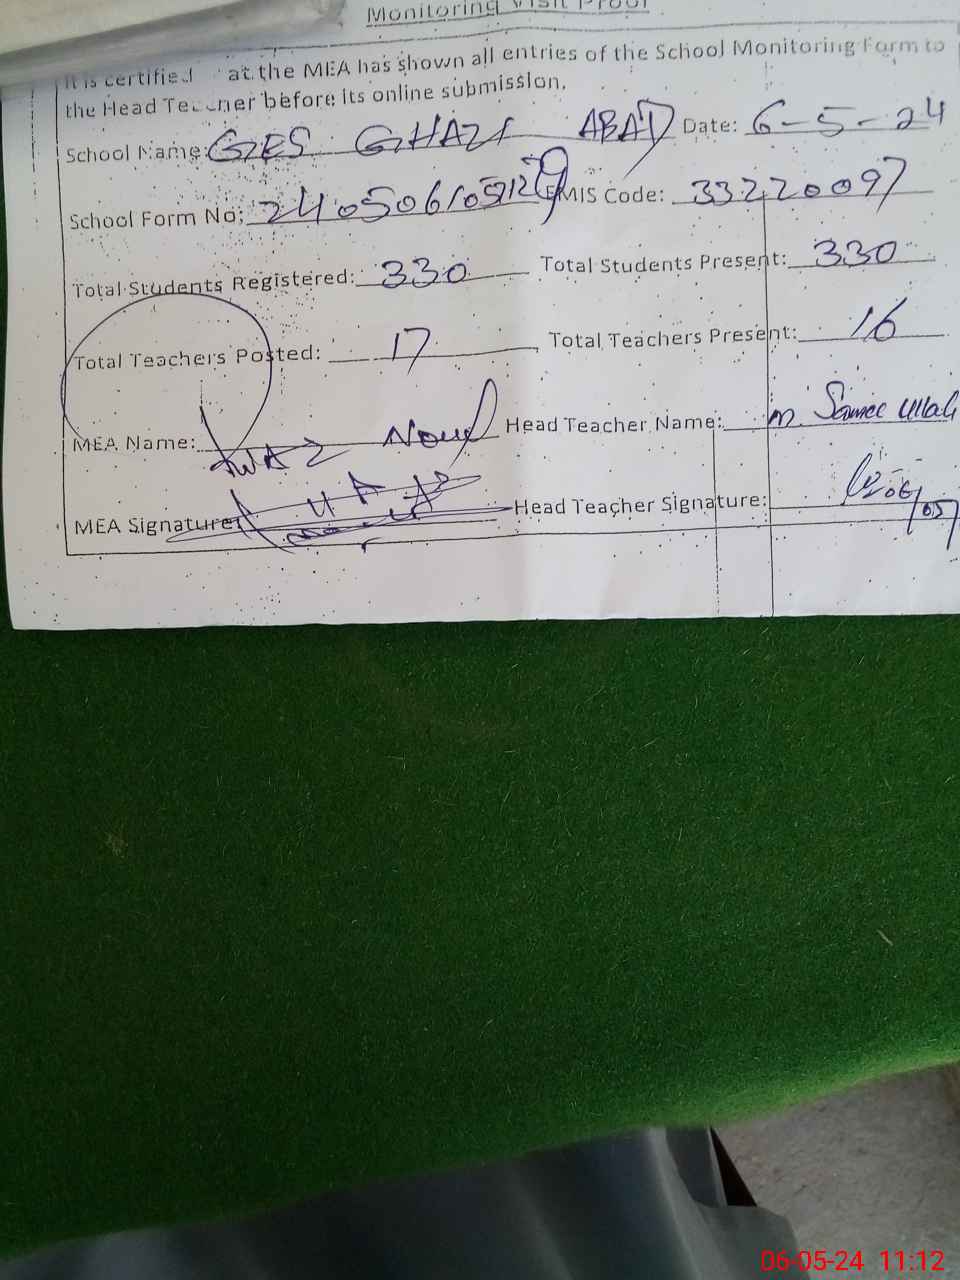 Monitoring Visit Proof
It is certified at the MEA has shown all entries of the School Monitoring Form to
the Head Teacher before its online submission.
School Name: GES GHAZI ABAD Date: 6-5-24
School Form No: EMIS Code: 33220097
Total Students Registered: 330 Total Students Present: 330
Total Teachers Posted: 17 Total Teachers Present: 16
MEA Name: Head Teacher Name: M. Samee Ullah
MEA Signature: Head Teacher Signature:
06-05-24 11:12